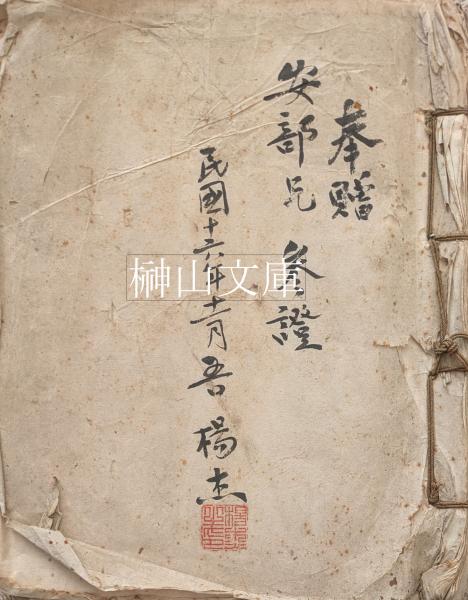 奉贈
安部兄 参證
民國十六年十一月吾 楊杰
榊山文庫